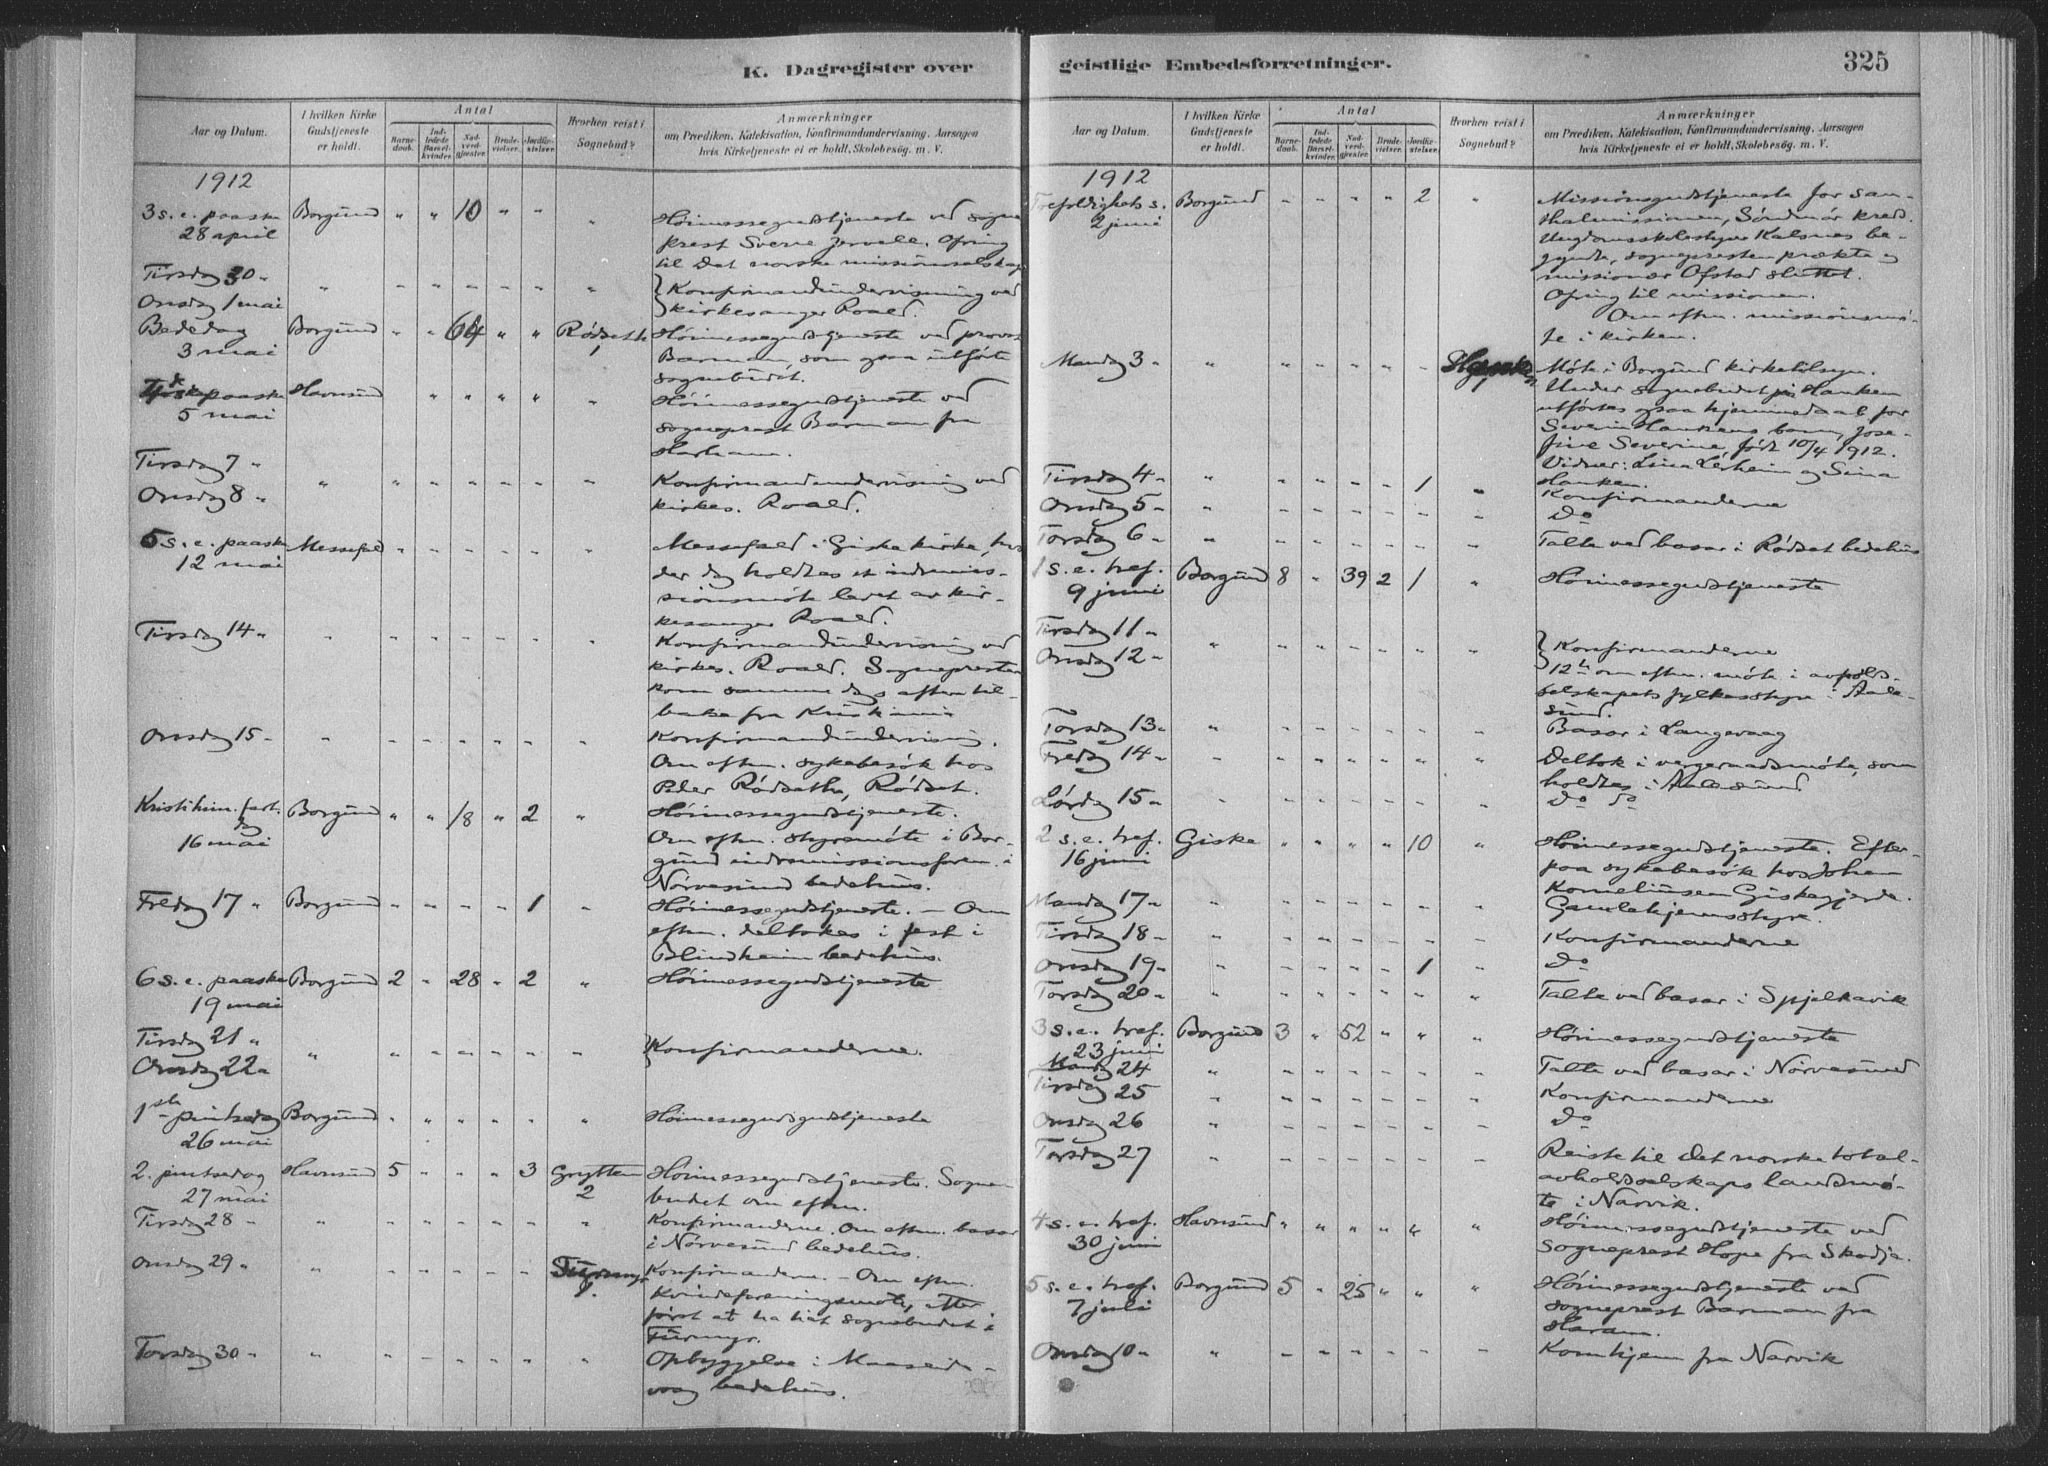 K. Dagregister over
Aar og Datum.
I hvilken Kirke Gudstjeneste er holdt.
Antal
Barnedaab.
Indledede Barselkvinder.
Nadverdgjester.
Brudevielser.
Jordfæstelser.
Hvorhen reist i Sognebud?
Anmærkninger
om Prædiken, Katekisation, Konfirmandundervisning. Aarsagen
hvis Kirketjeneste ei er holdt, Skolebesøg. m. V.
1912
3 s. e. paaske Borgund " " 10 " " " Høimessegudstjeneste ved sogne
28 april prest Sverre Jervell. Ofring
til Det norske missionsselskap
Tirsdag 30 "
Onsdag 1 mai " " " " " " " Konfirmandundervisning ved
kirkesanger Roald.
Bededag Borgund " " 64 " " Rødseth Høimessegudstjeneste ved provst
3 mai 1 Barman, som ogsaa utførte
sognebudet.
4 s. e. paaske Havnsund " " " " " Høimessegudstjeneste ved
5 mai sogneprest Barman fra
Harham.
Tirsdag 7 "
Onsdag 8 " " " " " " " " Konfirmandundervisning ved
kirkes. Roald.
5 s. e. paaske Messefald " " " " " " Messefald i Giske kirke, hvor
12 mai der dog holdtes et indremis-
sionsmøte ledet av kir-
kesanger Roald.
Tirsdag 14 " " " " " " " " Konfirmandundervisning ved
kirkes. Roald. Sognepresten
kom samme dags aften til-
bake fra Kristiania
Onsdag 15 " " " " " " " " Konfirmandundervisning.
Om eftm. sykebesøk hos
Peder Rødseth, Rødset.
Kristi him. fart. Borgund " " 18 " 2 " Høimessegudstjeneste.
dag
16 mai Om eftm. styremøte i Bor-
gund indremissionsforen. i
Nørvesund bedehus.
Fredag 17 " Borgund " " " " 1 " Høimessegudstjeneste. — Om
eftm. deltokes i fest i
Blindheim bedehus.
6 s. e. paaske Borgund 2 " 28 " 2 " Høimessegudstjeneste
19 mai
Tirsdag 21 "
Onsdag 22 " " " " " " " " Konfirmanderne.
1ste pintsedag Borgund " " " " " " Høimessegudsgudstjeneste
26 mai
2. pintsedag Havnsund 5 " " " 3 Grytten Høimessegudstjeneste. Sogne-
27 mai 2 budet om eftm.
Tirsdag 28 " " " " " " " " Konfirmanderne. Om eftm. basar
i Nørvesund bedehus.
Onsdag 29 " " " " " " " Konfirmanderne. — Om eftm.
Kvindeforeningsmøte, efter
først at ha hat sognebudet i
Furmyr.
Torsdag 30 " " " " " " " " Opbyggelse i Maaseide-
vaag bedehus.
geistlige Embedsforretninger.
325
Aar og Datum.
I hvilken Kirke Gudstjeneste er holdt.
Antal
Barnedaab.
Indledede Barselkvinder.
Nadverdgjester.
Brudevielser.
Jordfæstelser.
Hvorhen reist i Sognebud?
Anmærkninger
om Prædiken, Katekisation, Konfirmandundervisning. Aarsagen
hvis Kirketjeneste ei er holdt, Skolebesøg. m. V.
1912
Trefoldighets s. Borgund " " " " 2 " Missionsgudstjeneste for San-
2 juni thalmissionen, Søndmør kred.
Ungdomsskolestyrer Kalsnes be-
gyndte, sognepresten prækte og
missionær Ofstad sluttet.
Ofring til missionen.
Om eftm. missionsmø-
te i kirken.
Mandag 3 " " " " " " " Hanken Møte i Borgund kirketilsyn.
1 Under sognebudet paa Hanken
utførtes ogsaa hjemmedaab for
Severin Hankens barn, Jose-
fine Severine, født 10/4 1912.
Vidner: Lina Lerheim og Sina
Hanken.
Tirsdag 4 " " " " " " 1 " Konfirmanderne
Onsdag 5 " " " " " " " " Do
Torsdag 6 " " " " " " " " Talte ved basar i Rødset bedehus
1 s. e. tref. Borgund 8 " 39 2 1 " Høimessegudstjeneste
9 juni
Tirsdag 11 "
Onsdag 12 " " " " " " " " Konfirmanderne
12te om eftm. møte i avholds-
selskapets fylkesstyre i Aale-
sund.
Torsdag 13 " " " " " " " " Basar i Langevaag
Fredag 14 " " " " " " " " Deltok i vergeraadsmøte, som
holdtes i Aalesund
Lørdag 15 " " " " " " " " Do Do
2 s. e. tref. Giske " " " " 10 " Høimessegudstjeneste. Efter-
16 juni paa sykebesøk hos Johan
Korneliussen Giskegjerde.
Mandag 17 " " " " " " " " Gamlehjemsstyre.
Tirsdag 18 " " " " " " " " Konfirmanderne
Onsdag 19 " " " " " " 1 " Do
Torsdag 20 " " " " " " " " Talte ved basar i Spjelkavik
3 s. e. tref. Borgund 3 " 52 " " " Høimessegudstjeneste
23 juni
Mandag 24 " " " " " " " Talte ved basar i Nørvesund
Tirsdag 25 " " " " " " " Konfirmanderne
Onsdag 26 " " " " " " " Do
Torsdag 27 " " " " " " " Reiste til Det norske total-
avholdsselskaps landsmø-
te i Narvik.
4 s. e. tref. Havnsund " " " " " " Høimessegudstjeneste ved
30 juni sogneprest Hope fra Skodje.
5 s. e. tref. Borgund 5 " 25 " " " Høimessegudstjeneste ved
7 juli sogneprest Barman fra
Haram.
Onsdag 10 " " " " " " " " Kom hjem fra Narvik